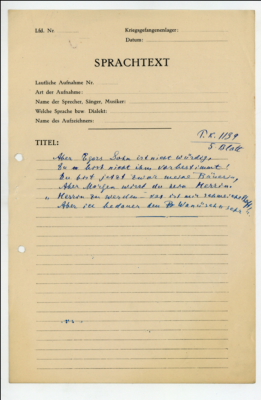 Lfd. Nr.
Kriegsgefangenenlager:
Datum:
SPRACHTEXT
Lautliche Aufnahme Nr.
Art der Aufnahme:
Name der Sprecher, Sänger, Musiker:
Welche Sprache bzw. Dialekt:
Name des Aufzeichners:
P.K. 1159
5. Blatt
TITEL:
Aber Egors Sohn ist nicht würdig.
Du bist nicht ihm vorbestimmt!
Du bist jetzt zwar meine Bäuerin,
Aber Morgen wirst du sein Herrin.
"Herrin zu werden" das ist mir schmeichelhaft
Aber ich bedauer den